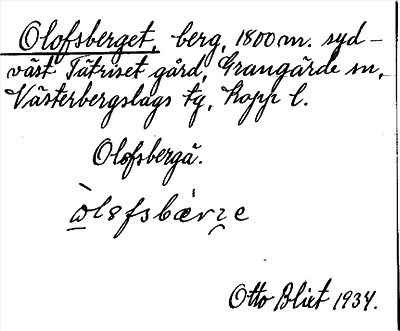 Olofsberget, berg, 1800 m. syd-
väst Tätriset gård, Grangärde sn,
Västerbergslags tg, Kopp l.
Olofsbergä.
Otto Blixt 1934.